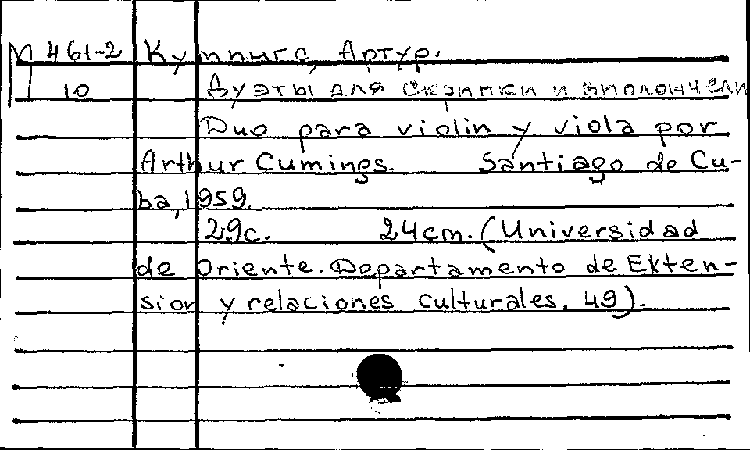 П 461-2 Куммингс, Артур.
10 Дуэты для скрипки и виолончели
Duo para violin y viola por
Arthur Cumings. Santiago de Cu-
ba, 1959.
29с. 24cm. (Universidad
de Oriente. Departamento de Exten-
sion y relaciones culturales. 49).